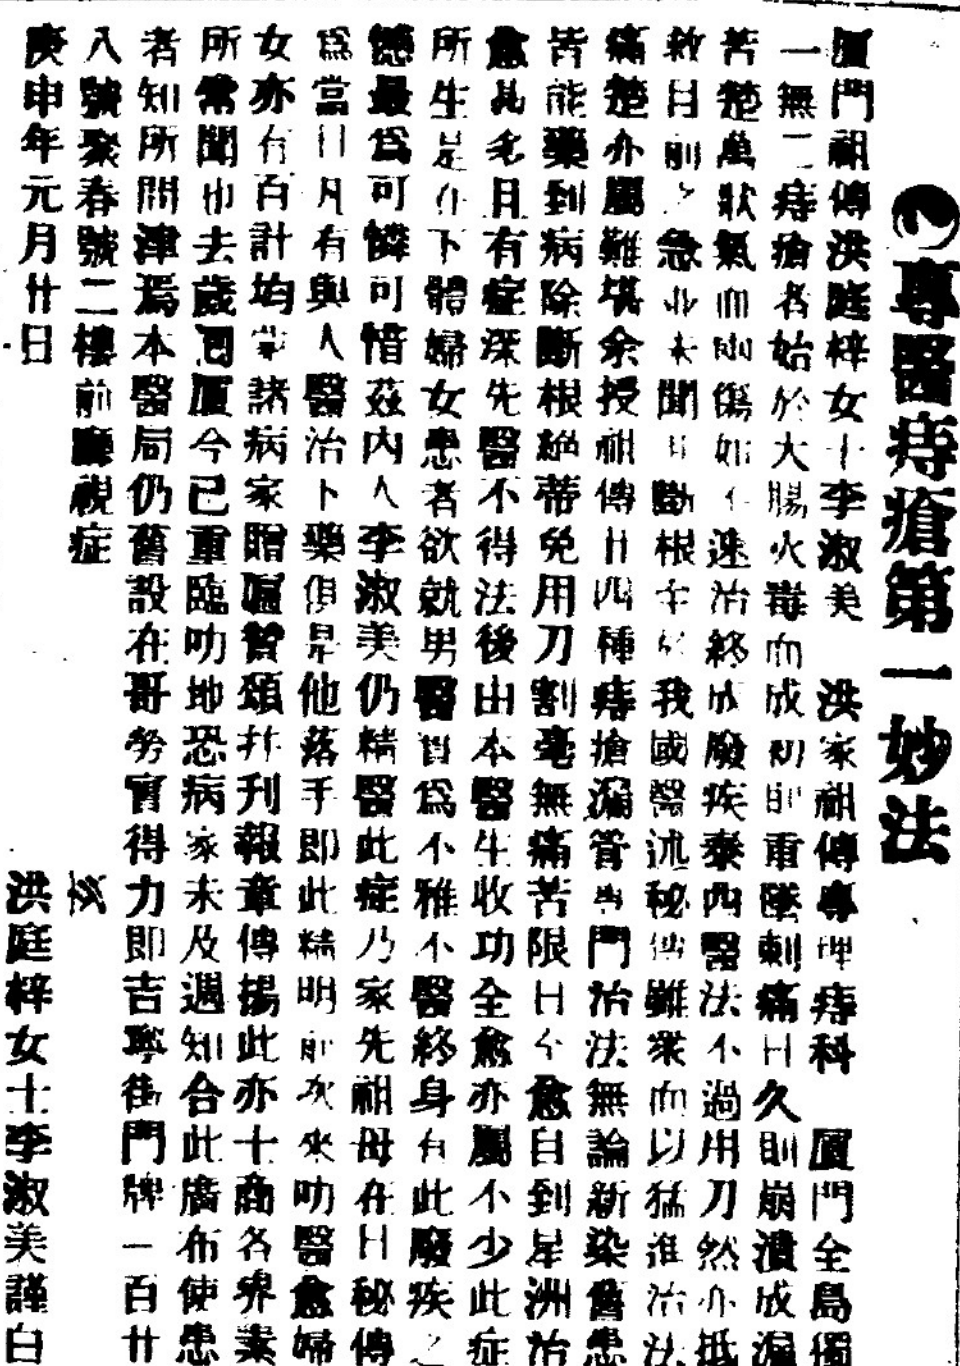 專醫痔瘡第一妙法
厦門祖傳洪庭梓女士李淑美 洪家祖傳專理痔科 厦門全島獨
一無二痔瘡者始於大腸火毒而成初則重墜刺痛日久則崩潰成漏
苦楚萬狀氣血兩傷如不速治終成廢疾泰西醫法不過用刀然亦抵
救目前之急並未聞斷根 我國醫述秘傳雖衆而以猛進治法
痛楚亦屬難堪余授祖傳廿四種痔瘡漏管專門治法無論新染舊患
皆能藥到病除斷根絕蒂免用刀割毫無痛苦限日全愈自到星洲治
愈甚多且有症深先醫不得法後由本醫生收功全愈亦屬不少此症
所生是在下體婦女患者欲就男醫實爲不雅不醫終身有此廢疾之
憾最爲可憐可惜茲內人李淑美仍精醫此症乃家先祖母在日秘傳
爲當日凡有與人醫治卜藥俱是他落手即此精明前次來叻醫愈婦
女亦有百計均蒙諸病家贈匾贊頌並刊報章傳揚此亦十商各界素
所常聞也去歲回厦今已重臨叻地恐病家未及週知合此廣布使患
者知所問津焉本醫局仍舊設在哥勞實得力即吉寧街門牌一百廿
八號聚春號二樓前廳視症
庚申年元月廿日 洪庭梓女士李淑美謹白